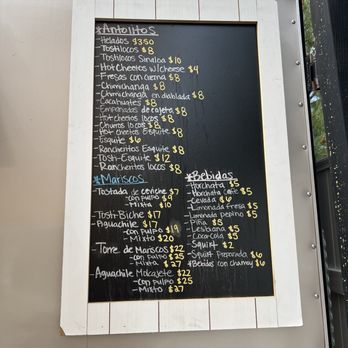 *Antojitos
-Helados $3.50
-Tostilocos $8
-Tostilocos Sinaloa $10
-Hot Cheetos w/ cheese $4
-Fresas con crema $8
-Chimichanga $8
-Chimichanga en diablada $8
-Cacahuates $8
-Empanadas de cajeta $8
-Hot cheetos locos $8
-Churros locos $8
-Hot Cheetos Esquite $8
-Esquite $6
-Rancheritos Esquite $8
-Tosti-Esquite $12
-Rancheritos locos $8
*Mariscos
-Tostada de ceviche $7
-con pulpo $9
-Mixta $10
-Tosti-Biche $17
-Aguachile $17
-con pulpo $19
-Mixto $20
-Torre de Mariscos $22
-con pulpo $25
-Mixto $27
-Aguachile Molcajete $22
-con pulpo $25
-Mixto $27
*Bebidas
-Horchata $5
-Horchata Café $5
-Cevada $6
-Limonada fresa $5
-Limonada pepino $5
-Piña $5
-Coca-Cola $5
-Squirt $2
-Squirt Preparada $6
*Bebidas con chamoy $6